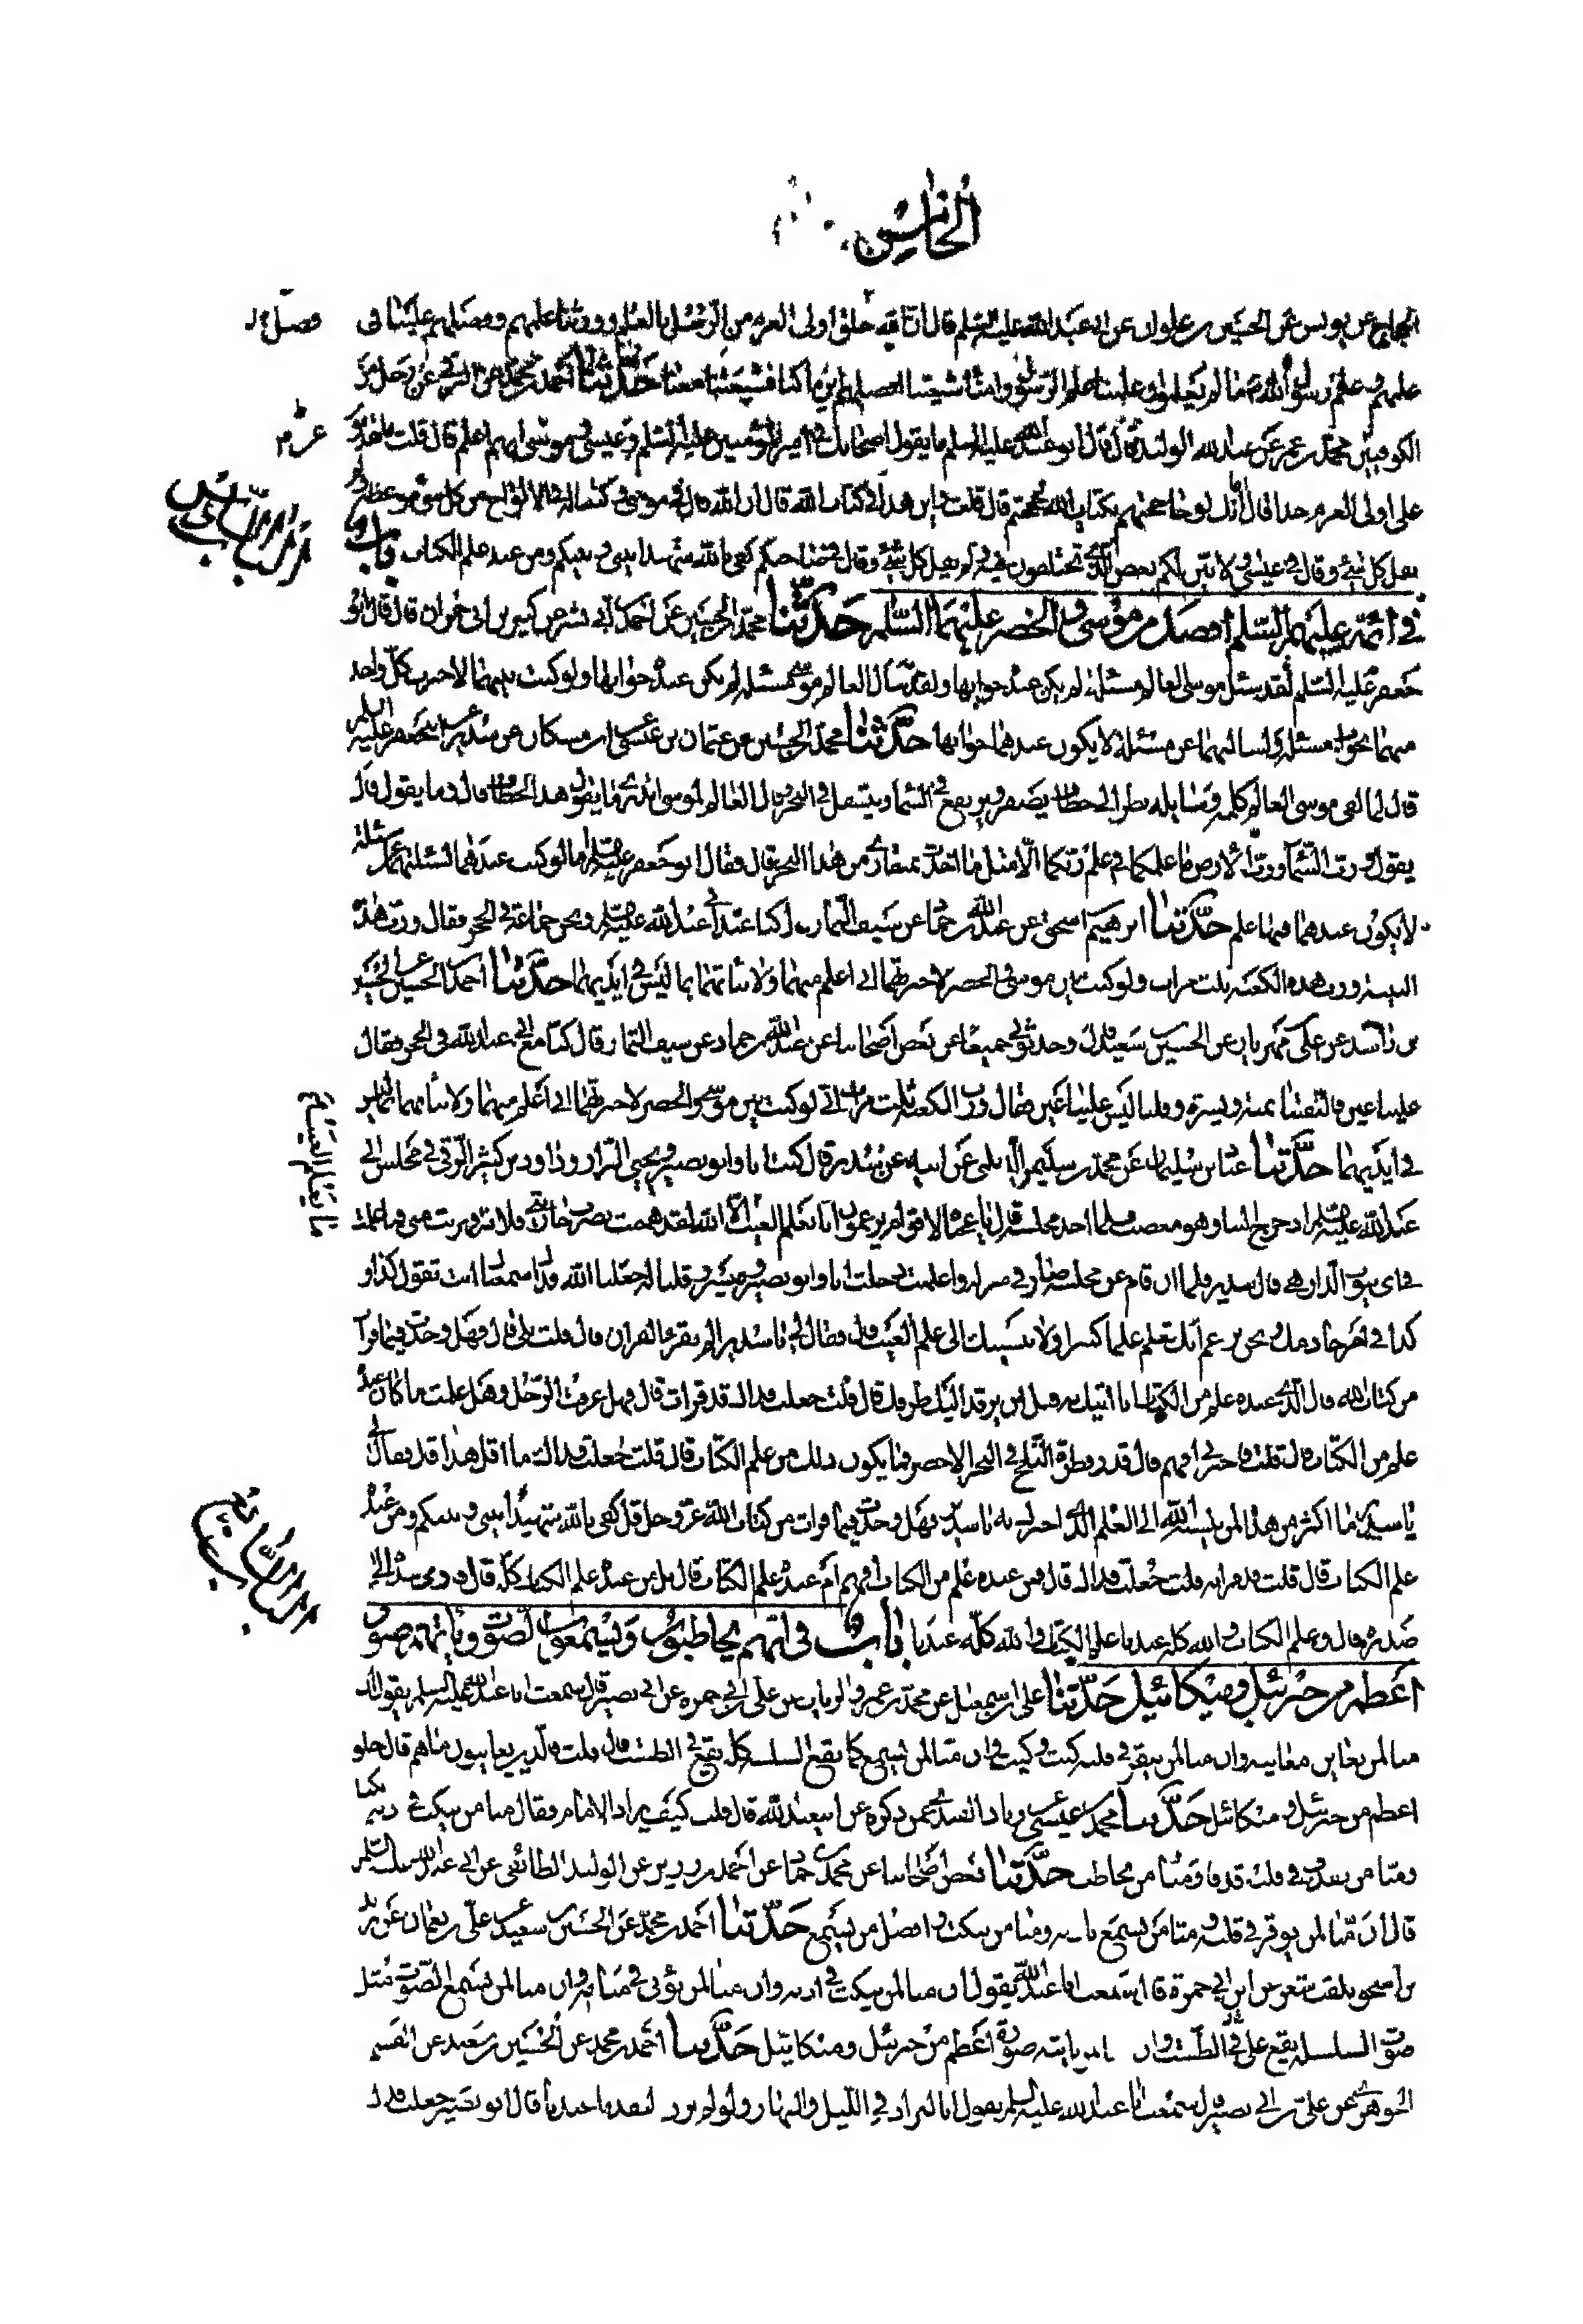 الخامس
الحجاج عن يونس عن الحسين بن علوان عن ابي عبد الله عليه السلم قال ان الله خلق اولى العزم من الرسل بالعلم وورثنا علمهم وفضلهم علينا فى
علمهم وعلم رسول الله ما لم يعلموا وعلمنا علم الرسول وامنا شيعتنا افضلهم اين ما كنا فشيعتنا معنا حدثنا احمد بن محمد عن البرقى عن رجل من
الكوفيين عن محمد بن عمر عن عبد الله الوليد قال قال ابو عبد الله عليه السلم ما يقول اصحابك فى امير المؤمنين عليه السلم وعيسى وموسى ايهم اعلم قال قلت ما يقدمون
على اولى العزم احدا قال انك لو حاججتهم بكتاب الله لحججتهم قال قلت اين هذا فى كتاب الله قال ان الله قال فى موسى وكتبنا له فى الالواح من كل شىء موعظة ولم
يقل كل شىء وقال فى عيسى ولابين لكم بعض الذى تختلفون فيه ولم يقل كل شىء وقال فى صاحبكم كفى بالله شهيدا بينى وبينكم ومن عنده علم الكتاب باب
فى ائمة عليهم السلم افضل من موسى والخضر عليهما السلم حدثنا محمد بن الحسين عن احمد بن ابى بشر عن كثير بن ابى حمران قال قال ابو
جعفر عليه السلم لقد سئل موسى العالم مسئلة لم يكن عنده جوابها ولقد سأل العالم موسى مسئلة لم يكن عنده جوابها ولو كنت بينهما لاخبرت كل واحد
منهما بجواب مسئلته ولسالتهما عن مسئلة لا يكون عندهما جوابها حدثنا محمد بن الحسين عن عثمان بن عيسى عن ابن مسكان عن سدير عن ابى جعفر عليه السلم
قال لما لقى موسى العالم كلمه وسايله نظر الى خطاف يصفر ويرتفع فى السماء ويتسفل فى البحر فقال العالم لموسى اتدرى ما يقول هذا الخطاف قال وما يقول قال
يقول ورب السماء ورب الارض ما علمكما فى علم ربكما الا مثل ما اخذت بمنقارى من هذا البحر قال فقال ابو جعفر عليه السلم اما لو كنت عندهما لسئلتهما عن مسئلة
لا يكون عندهما فيها علم حدثنا ابرهيم بن اسحق عن عبد الله بن حماد عن سيف التمار قال كنا عند ابى عبد الله عليه السلم ونحن جماعة فى الحجر فقال ورب هذه
البنية ورب هذه الكعبة ثلث مرات ولو كنت بين موسى والخضر لاخبرتهما انى اعلم منهما ولانباتهما بما ليس فى ايديهما حدثنا احمد بن الحسين عن الحسين
بن راشد عن على بن مهزيار عن الحسين بن سعيد قال وحدثونى جميعا عن بعض اصحابنا عن عبد الله بن حماد عن سيف التمار قال كنا مع ابى عبد الله فى الحجر فقال
علينا عين فالتفتنا يمنة ويسرة وقلنا ليس علينا عين فقال ورب الكعبة ثلث مرات انى لو كنت بين موسى والخضر لاخبرتهما انى اعلم منهما ولانباتهما بما ليس
فى ايديهما حدثنا عباد بن سليمان عن محمد بن سليمن الديلمى عن ابيه عن سدير قال كنت انا وابو بصير ويحيى البزاز وداود بن كثير الرقى فى مجلس ابى
عبد الله عليه السلم اذ خرج الينا وهو مغضب فلما اخذ مجلسه قال يا عجباه لاقوام يزعمون انا نعلم الغيب وما يعلم الغيب الا الله لقد هممت بضرب جاريتى فلانة فهربت منى فما علمت
فى اى بيوت الدار هى قال سدير فلما ان قام عن مجلسه وصار فى منزله واعلمت دخلت انا وابو بصير وميسر وقلنا له جعلنا الله فداك سمعناك انت تقول كذا و
كذا فى امر خادمك ونحن نزعم انك تعلم علما كثيرا ولا ننسبك الى علم الغيب قال فقال لى يا سدير الم تقرء القران قال قلت بلى قال فهل وجدت فيما قرات
من كتاب الله قال الذى عنده علم من الكتاب انا اتيك به قبل ان يرتد اليك طرفك قال قلت جعلت فداك قد قرات قال فهل عرفت الرجل وهل علمت ما كان عنده
علم من الكتاب قال قلت فاخبرنى افهم قال قدر قطرة الثلج فى البحر الاخضر فما يكون ذلك من علم الكتاب قال قلت جعلت فداك ما اقل هذا قال فقال لى
يا سدير ما اكثر من هذا لمن ينسبه الله الى العلم الذى اخبرك به يا سدير فهل وجدت فيما قرات من كتاب الله عز وجل قل كفى بالله شهيدا بينى وبينكم ومن عنده
علم الكتاب قال قلت قد قراته قلت جعلت فداك قال فمن عنده علم من الكتاب افهم ام من عنده علم الكتاب قال بل من عنده علم الكتاب كله قال فاومى بيده الى
صدره قال وعلم الكتاب والله كله عندنا علم الكتاب والله كله عندنا باب فى انهم يخاطبون ويسمعون الصوت وياتيهم صور
اعظم من جبرئيل وميكائيل حدثنا على بن اسمعيل عن محمد بن عمرو الزيات عن على بن ابى حمزه عن ابى بصير قال سمعت ابا عبد الله عليه السلم يقول ان
منا لمن يعاين معاينة وان منا لمن ينقر فى قلبه كيت وكيت وان منا لمن يسمع كما يقع السلسلة كله يقع فى الطست قال قلت فالذين يعاينون ما هم قال خلق
اعظم من جبرئيل وميكائيل حدثنا محمد بن عيسى عن زياد القندى عمن ذكره عن ابى عبد الله قال قلت كيف يزاد الامام فقال منا من ينكت فى اذنه نكتا
ومنا من يقذف فى قلبه قذفا ومنا من يخاطب حدثنا بعض اصحابنا عن محمد بن حماد عن احمد بن رزين عن الوليد الطائفى عن ابى عبد الله عليه السلم
قال ان منا لمن يوقر فى قلبه ومنا من يسمع باذنه ومنا من ينكت وافضل من يسمع حدثنا احمد بن محمد عن الحسين بن سعيد عن على بن نعمان عن يزيد
بن اسحق يلقب شعر عن ابن ابى حمزة قال سمعت ابا عبد الله يقول ان منا لمن ينكت فى اذنه وان منا لمن يؤتى فى منامه وان منا لمن يسمع الصوت مثل
صوت السلسلة يقع على الطست وان ياتيه صورة اعظم من جبرئيل وميكائيل حدثنا احمد بن محمد عن الحسين بن سعيد عن القسم
الجوهرى عن على بن ابى بصير قال سمعت ابا عبد الله عليه السلم يقول انا لنزاد فى الليل والنهار ولو لم نزد لنفد ما عندنا قال ابو بصير جعلت فداك